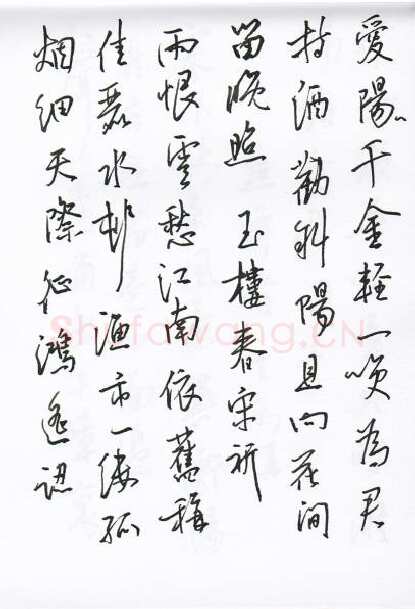 愛陽千金輕一笑為君
持酒勸斜陽且向花間
留晚照 玉樓春宋祈
雨恨雲愁江南依舊稱
佳麗水村漁市一縷孤
烟細天際征鴻遙認
Shufawang.CN